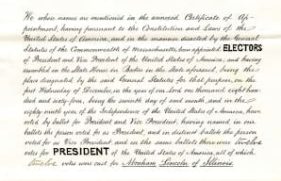 We whose names are mentioned in the annexed Certificate of Ap-
pointment, having pursuant to the Constitution and Laws of the
United States of America, and in the manner directed by the General
Statutes of the Commonwealth of Massachusetts, been appointed ELECTORS
of President and Vice President of the United States of America, and having
assembled in the State House in Boston in the State aforesaid, being the
place designated by the said General Statutes for that purpose, on the
first Wednesday of December, in the year of our Lord one thousand eight hun-
dred and sixty four, being the seventh day of said month, and in the
eighty ninth year of the Independence of the United States of America, have
voted by ballot for President and Vice President, having named in our
ballots the person voted for as President, and in distinct ballots the person
voted for as Vice President and in the same ballots there were twelve
votes for PRESIDENT of the United States of America, all of which
twelve votes were cast for Abraham Lincoln of Illinois.